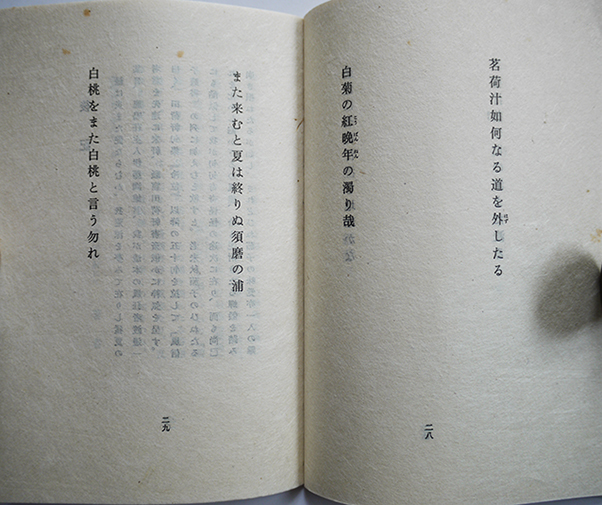 茗荷汁如何なる道を外したる
白菊の紅晩年の濁り哉
二八
また来むと夏は終りぬ須磨の浦
白桃をまた白桃と言う勿れ
二九